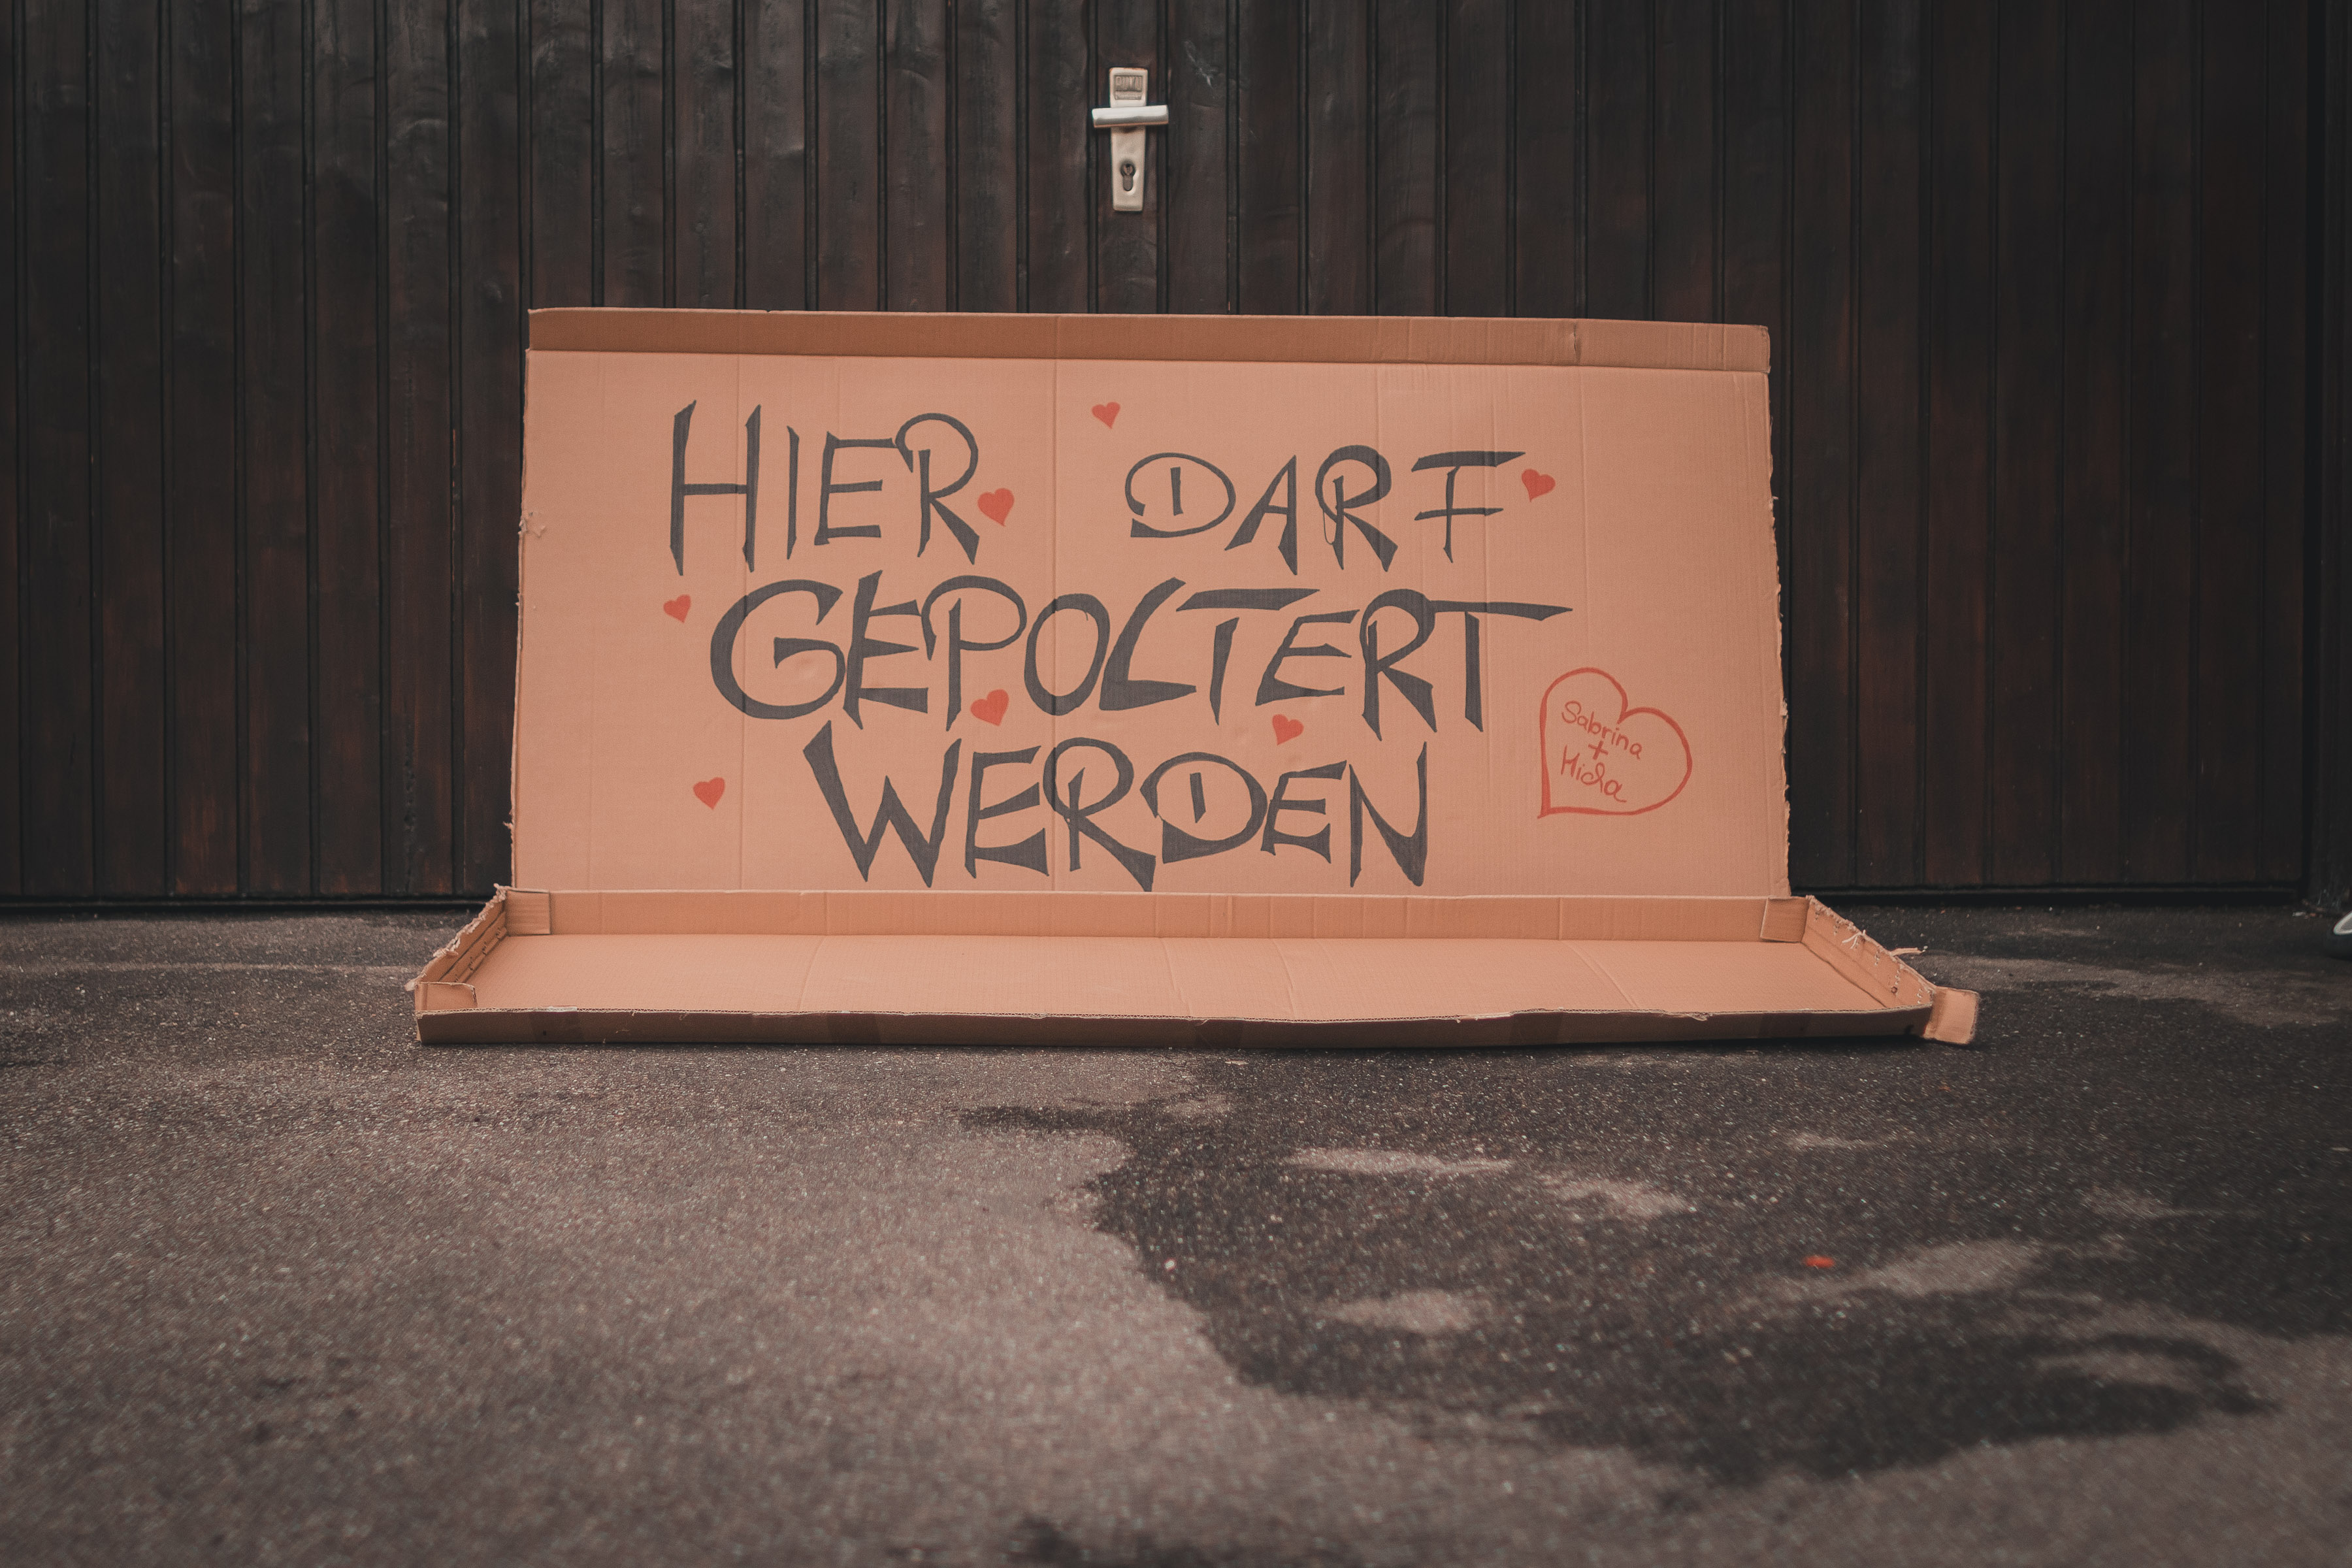 HIER DARF
GEPOLTERT
WERDEN
Sabrina
+
Micha